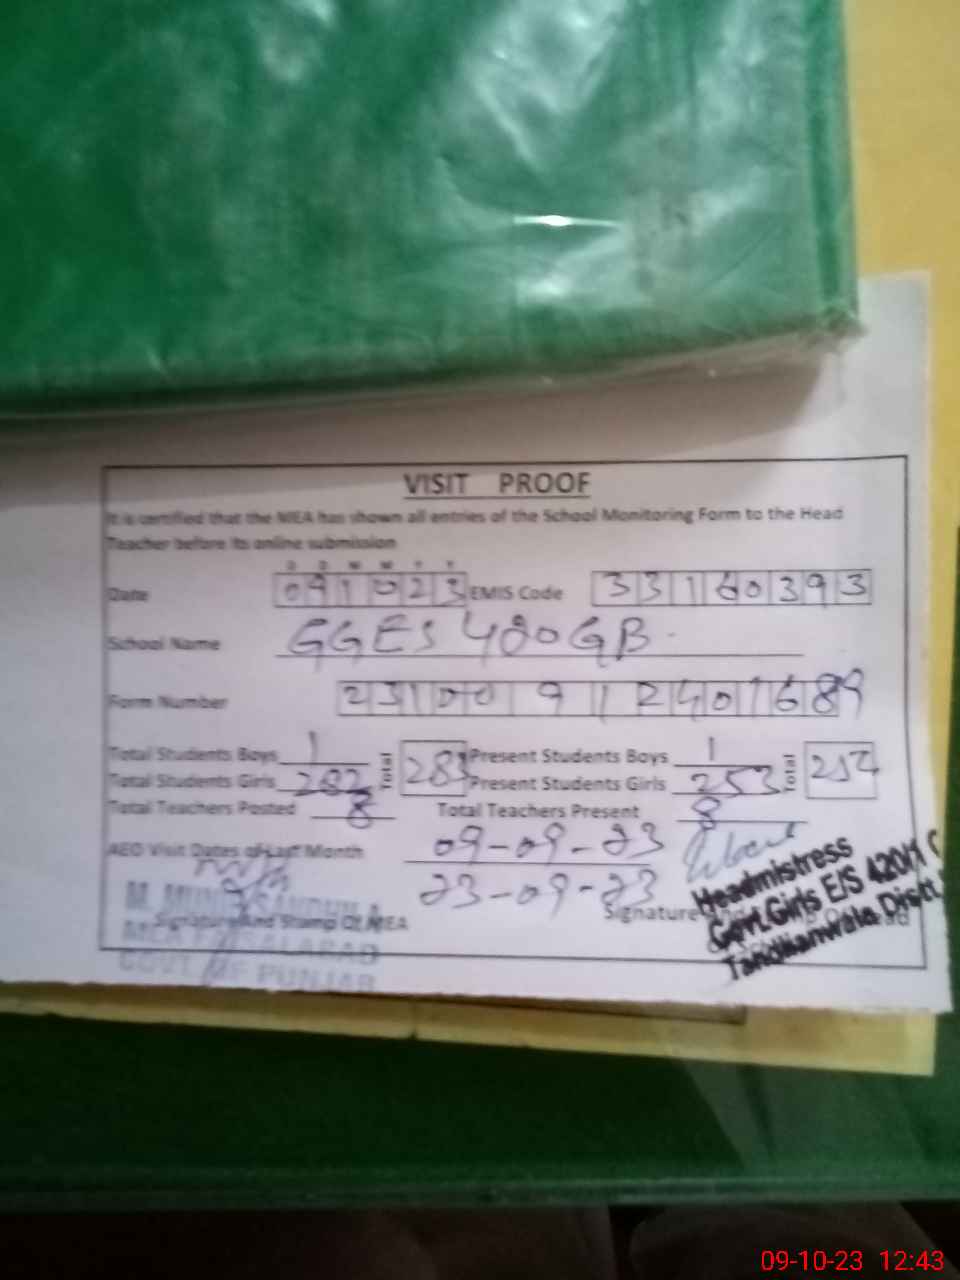 VISIT PROOF
It is certified that the MEA has shown all entries of the School Monitoring Form to the Head
Teacher before its online submission
D D M M Y Y
Date 091023 EMIS Code 33160393
School Name GGES 420 GB
Form Number 23100912401689
Total Students Boys 1 Total 283 Present Students Boys 1 Total 254
Total Students Girls 282 Present Students Girls 253
Total Teachers Posted 8 Total Teachers Present 8
AEO Visit Dates of Last Month 09-09-23
23-09-23
Signature And Stamp Of MEA Signature
GOVT. OF PUNJAB
Headmistress
Govt. Girls E/S 420/
Tandlianwala Distt.
09-10-23 12:43